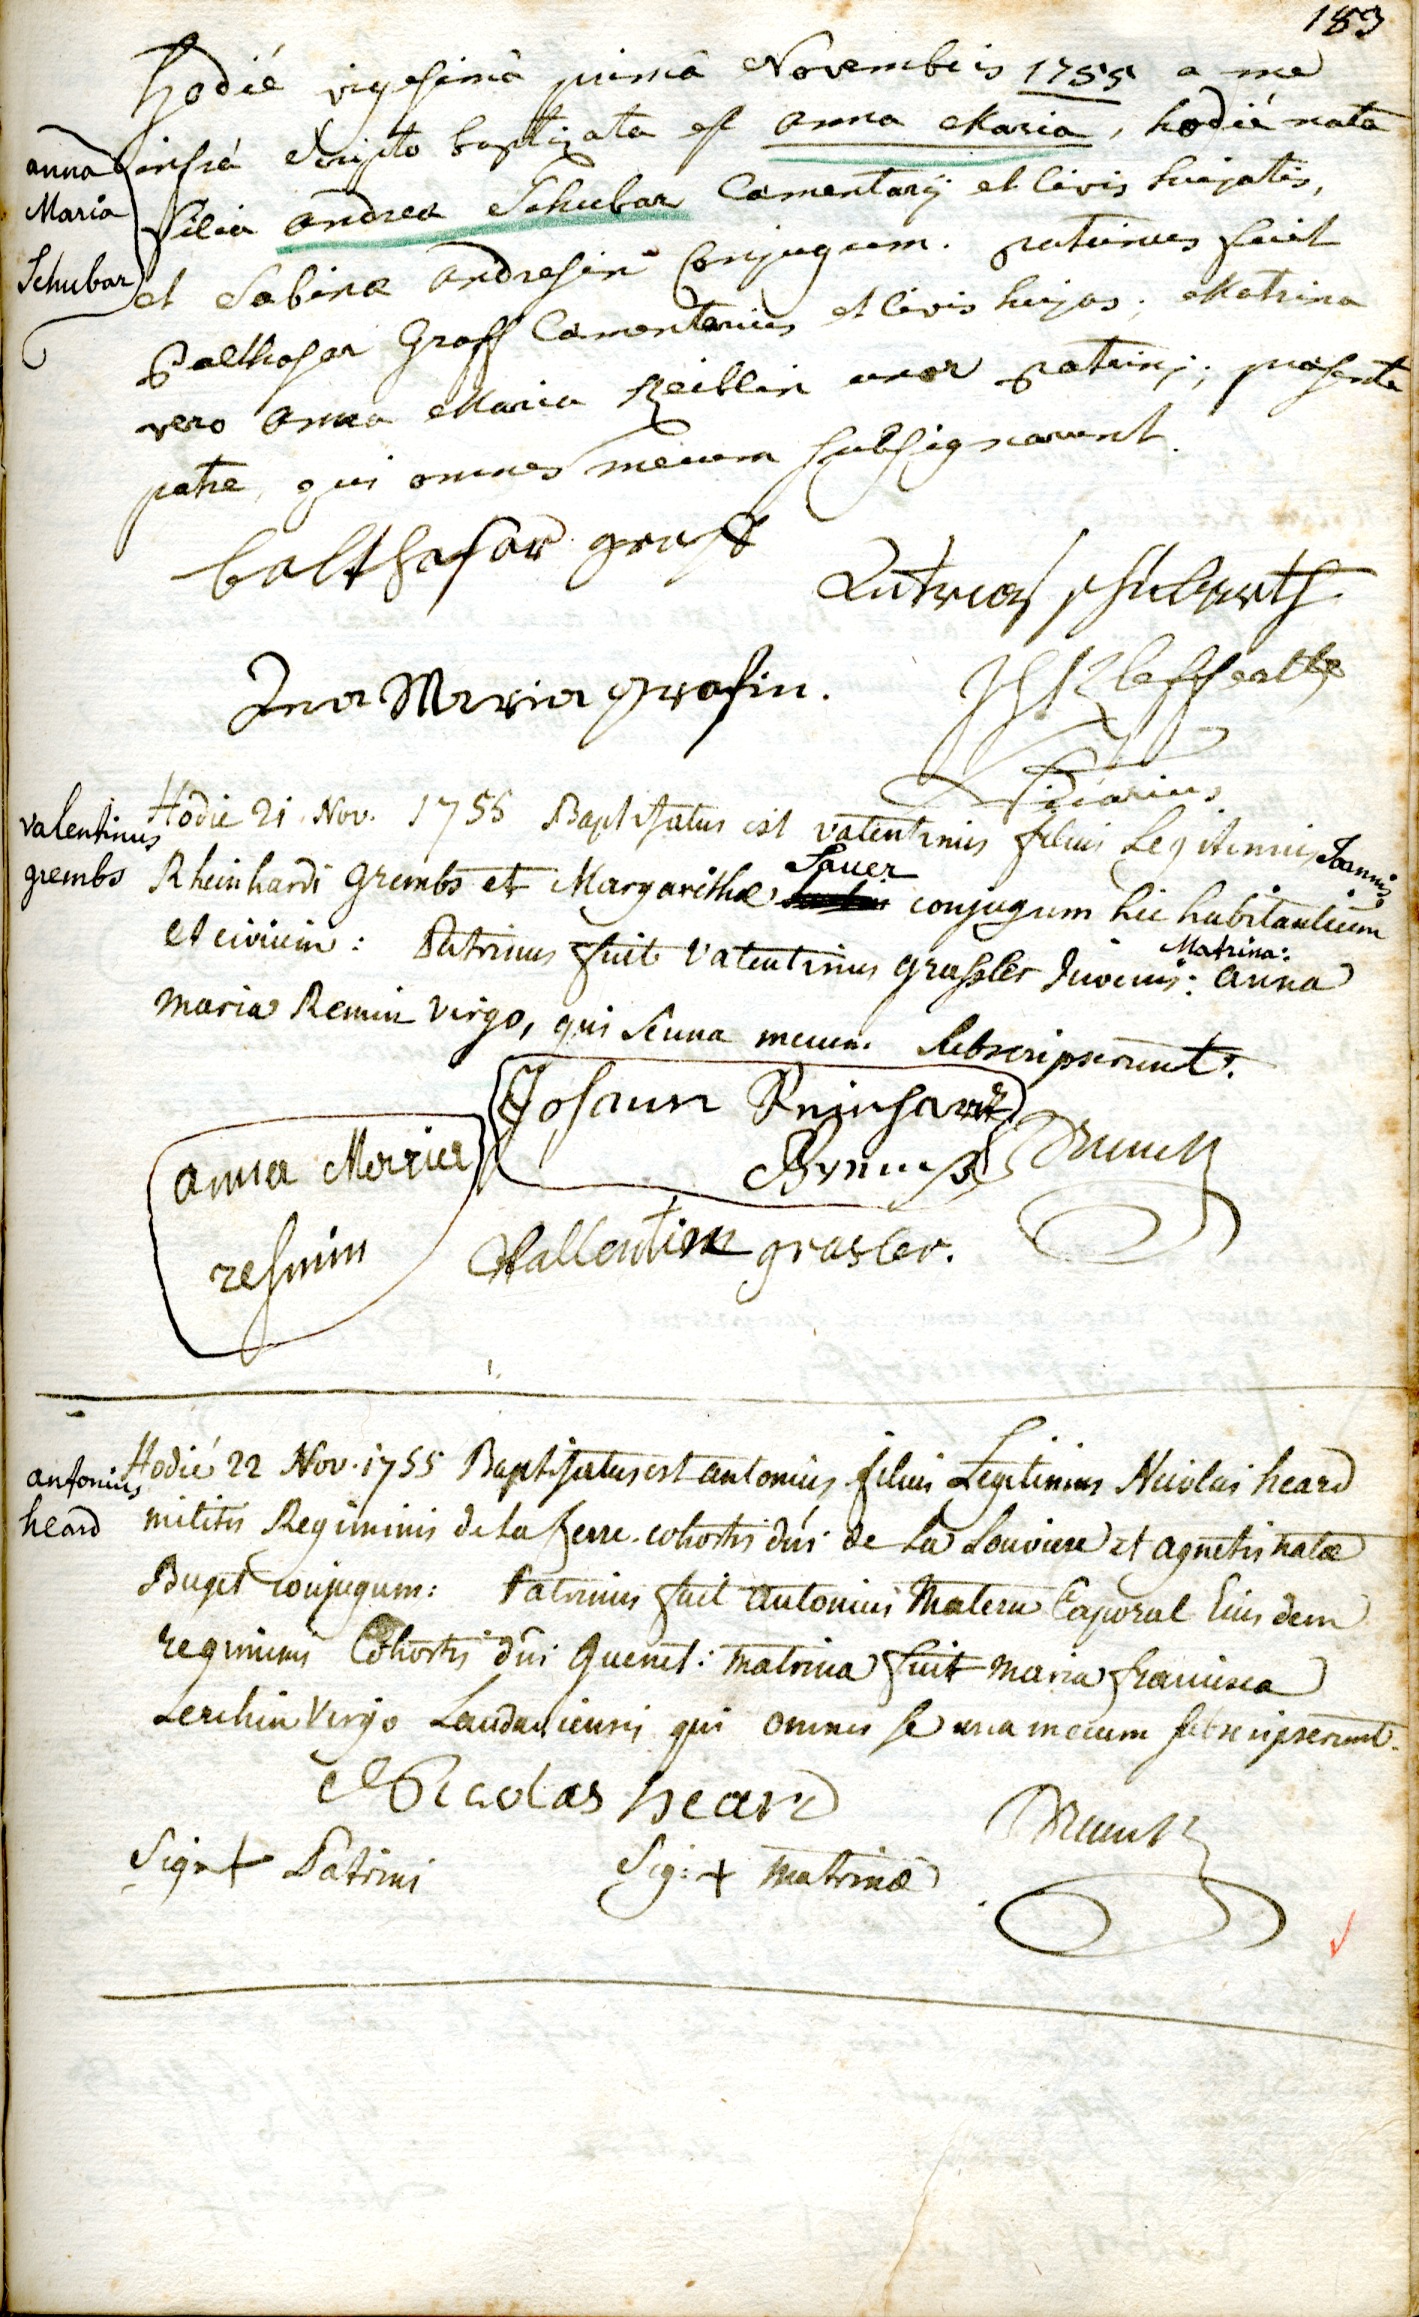 183
Hodié vigesimâ primâ Novembris 1755 a me
anna
Maria
Schubar
infrá scripto baptizata est anna Maria, hodié nata
filia andrea Schubar Cæmentarÿ et civis hujatis,
et Sabina andresin Conjugum. patrinus fuit
Balthasar Graff Cæmentarius et civis hujas; Matrina
vero anna Maria Keiblin uxor patrini; præsente
patre, qui omnes mecum subsignarunt.
balthasar graff
Antreas schubarth
Ana Maria grafin.
valentinus
grembs
Hodie 21 Nov. 1755 Baptisatus est valentinus filius Legitimus Joannis
Rheinhardi Grembs et Margarithæ Sauer conjugum hic habitantium
et civium: Patrinus fuit Valentinus grassler Juvenis: Matrina: anna
maria Remin virgo, qui se una mecum subscripserunt.
Johann Reinhard
anna Maria
resmin
Vallentin grasler.
antonius
heard
Hodié 22 Nov. 1755 Baptisatus est antonius filius Legitimus Nicolai heard
militis Regiminis de la ferre cohortis dni de La Louviere et agnetis natæ
Buget conjugum: Patrinus fuit antonius Matern Caporal Eius dem
regiminis Cohortis dni Quenet: matrina fuit maria francisca
Lerchin Virgo Landaviensis qui omnes se una mecum subscripserunt.
Nicolas heard
Sign + Patrini
Sig: + matrinæ